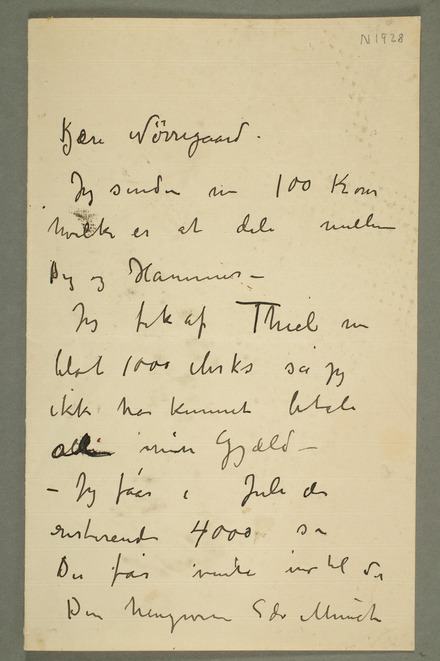 N 1928
Kjære Nörregaard.
Jeg sender nu 100 Kroner
hvilke er at dele mellem
Dig og Hammer –
Jeg fik af Thiel nu
blot 1000 Marks så jeg
ikke har kunnet betale
alle min Gjæld –
– Jeg får i Juli de
resterende 4000 så
Du får vente til
Din hengivne Edv Munch